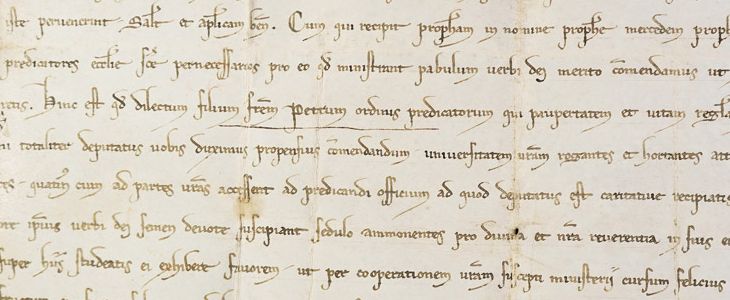 iste pervenerint Salt et aplicam ben. Cum qui recipit propham in nomine prophe mercedem proph
predicatores ecclie sce pernecessarios pro eo qd ministrant pabulum verbi dei merito comendamus ut
Hinc est qd dilectum filium frem Petrum ordinis predicatorum qui paupertatem et vitam regla
totaliter deputatus vobis duximus propensius comendandum universitatem vram rogantes et hortantes att
quatin cum ad partes vras accesserit ad predicandi officium ad quod deputatus est caritative recipiatis
ipsius verbi dei semen devote suscipiant sedulo ammonentes pro divina et nra reverentia in suis
super hiis studeatis ei exhibere favorem ut per cooperationem vram suscepti ministerii cursum felicius